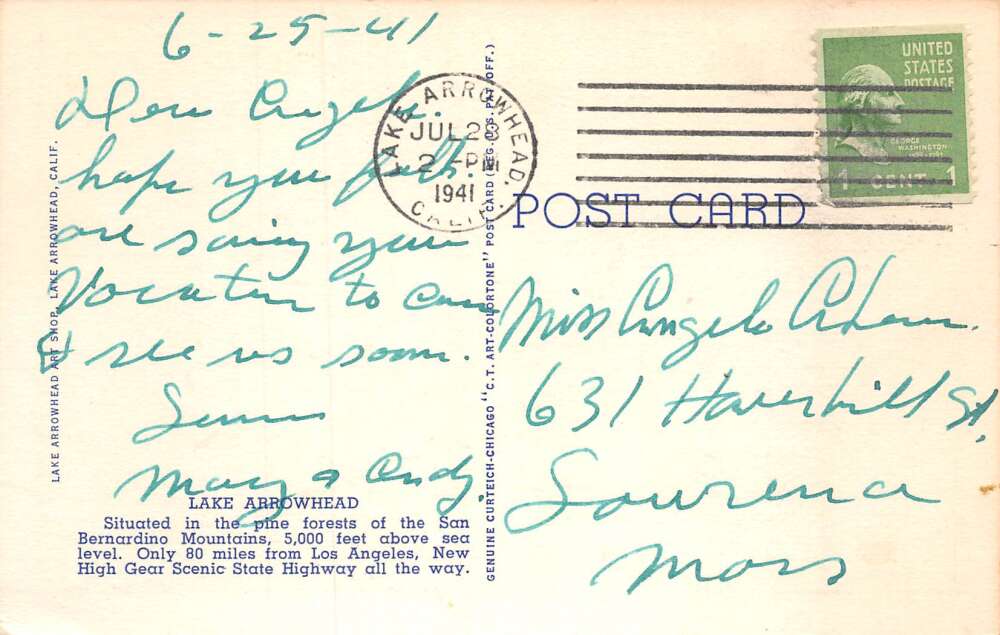 6-25-41
Dear Angela.
hope you folks
are saving your
Vacation to come
& see us soon.
Mary & Andy.
LAKE ARROWHEAD
Situated in the pine forests of the San
Bernardino Mountains, 5,000 feet above sea
level. Only 80 miles from Los Angeles, New
High Gear Scenic State Highway all the way.
LAKE ARROWHEAD ART SHOP, LAKE ARROWHEAD, CALIF.
GENUINE CURTEICH-CHICAGO "C.T. ART-COLORTONE" POST CARD (REG. U.S. PAT. OFF.)
LAKE ARROWHEAD,
JUL 26
2 - PM
1941
CALIF.
UNITED
STATES
POSTAGE
GEORGE
WASHINGTON
1 CENT 1
POST CARD
Miss Angela
631 Haverhill St,
Lawrence
Mass